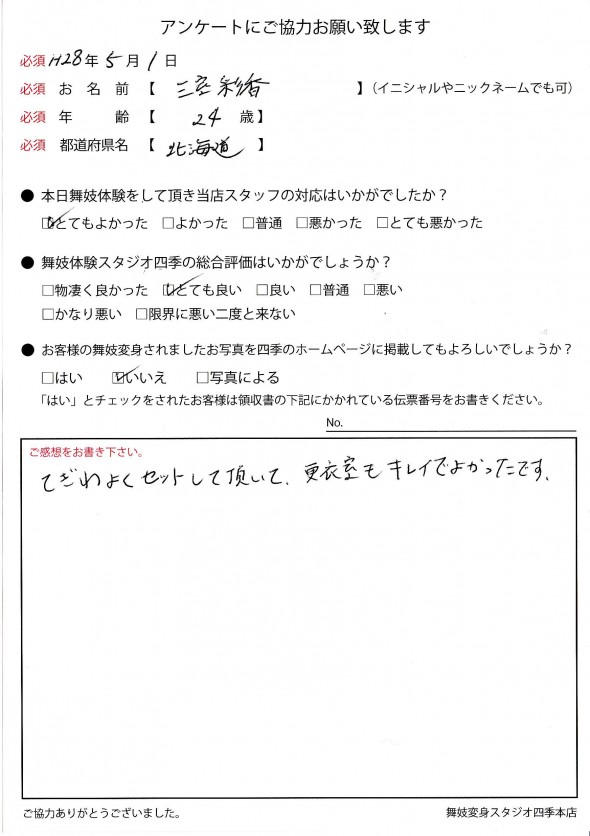 アンケートにご協力お願い致します
必須 H28年 5月 1日
必須 お 名 前 【 三室 彩香 】(イニシャルやニックネームでも可)
必須 年 齢 【 24 歳】
必須 都道府県名 【 北海道 】
● 本日舞妓体験をして頂き当店スタッフの対応はいかがでしたか?
☑とてもよかった □よかった □普通 □悪かった □とても悪かった
● 舞妓体験スタジオ四季の総合評価はいかがでしょうか?
□物凄く良かった ☑とても良い □良い □普通 □悪い
□かなり悪い □限界に悪い二度と来ない
● お客様の舞妓変身されましたお写真を四季のホームページに掲載してもよろしいでしょうか?
□はい ☑いいえ □写真による
「はい」とチェックをされたお客様は領収書の下記にかかれている伝票番号をお書きください。
No.
ご感想をお書き下さい。
てぎわよくセットして頂いて、更衣室もキレイでよかったです。
ご協力ありがとうございました。
舞妓変身スタジオ四季本店